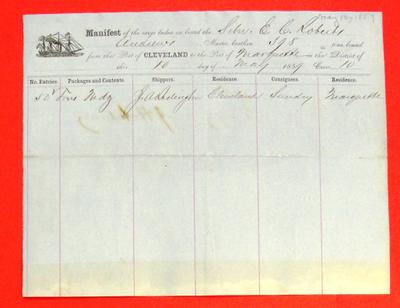 May 10, 1859
Manifest of the cargo laden on board the Schr E. C. Roberts
Andrews Master, burthen 398 tons bound
from the Port of CLEVELAND to the Port of Marquette in the District of
this 10 day of May 1859 Crew 10
No. Entries. Packages and Contents. Shippers. Residence. Consignees. Residence.
50 Tons Mdg Cleveland Sundry Marquette